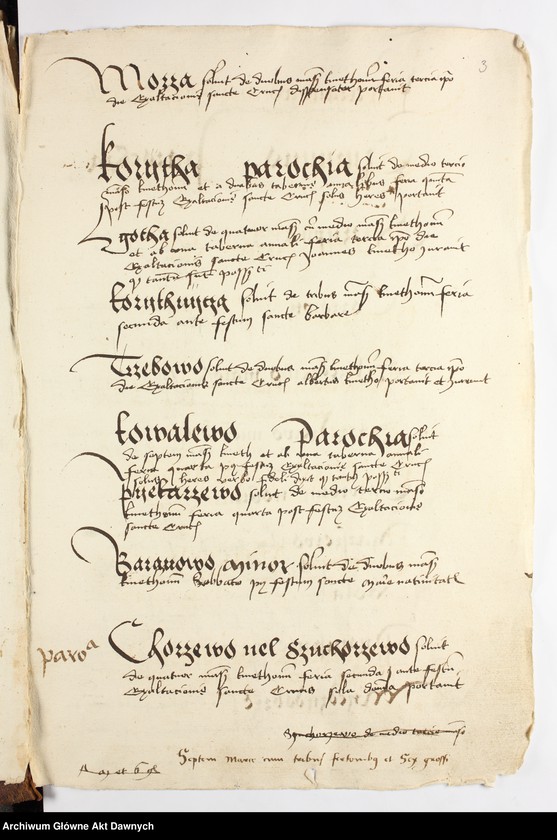 3
Mozza soluit de duobus mass kmethonum feria tercia ipso
die Exaltacionis sancte Crucis dispensator portauit
korytha parochia soluit de medio tercio
manso kmethonum et a duabus tabernis feria quinta
post festum Exaltacionis sancte Crucis solus heres portauit
gotha soluit de quatuor mass cum medio manso kmethonum
et ab una taberna annali feria tercia ipso die
Exaltacionis sancte Crucis Joannes kmetho Jurauit
korythnycza soluit de tribus mass kmethonum feria
secunda ante festum sancte barbare
Trzebowo soluit de duobus mass kmethonum feria tercia ipso
die Exaltacionis sancte Crucis albertus kmetho portauit et Jurauit
kowalewo parochia soluit
de septem mass kmeth et ab una taberna annali
feria quarta post festum Exaltacionis sancte Crucis
solus heres verbo fideli dixit
soluit de medio tercio manso
kmethonum feria quarta post festum Exaltacionis
sancte Crucis
Baranowo minor soluit de duobus mass
kmethonum Sabbato post festum sancte marie natiuitatis
paroa
Chorzewo uel Szuchorzewo soluit
de quatuor mass kmethonum feria secunda ante festum
Exaltacionis sancte Crucis sola domina portauit
Szuchorzewo de medio tercio manso
Septem Marce cum tribus fertonibus et Sex grossi
Archiwum Główne Akt Dawnych